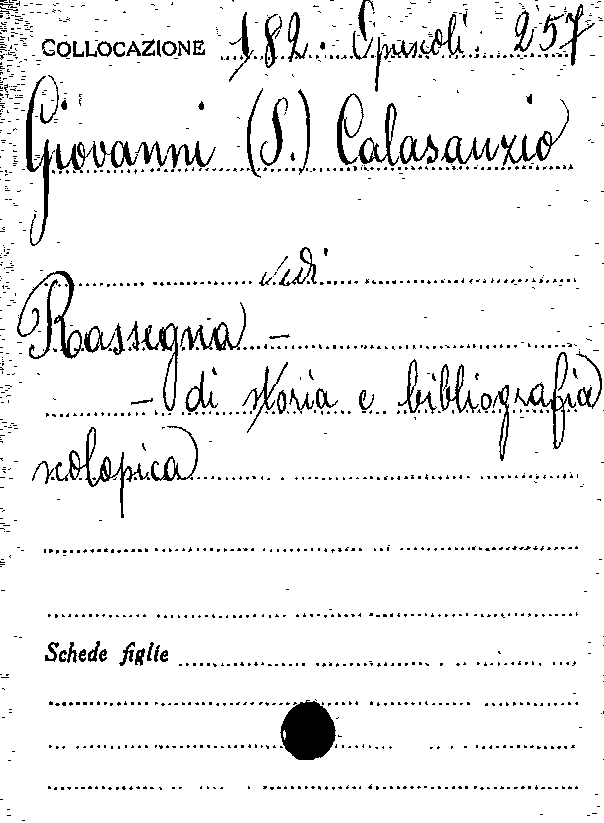 COLLOCAZIONE 182. Opuscoli. 257
Giovanni (S.) Calasanzio
vedi
Rassegna -
- di storia e bibliografia
scolopica
Schede figlie